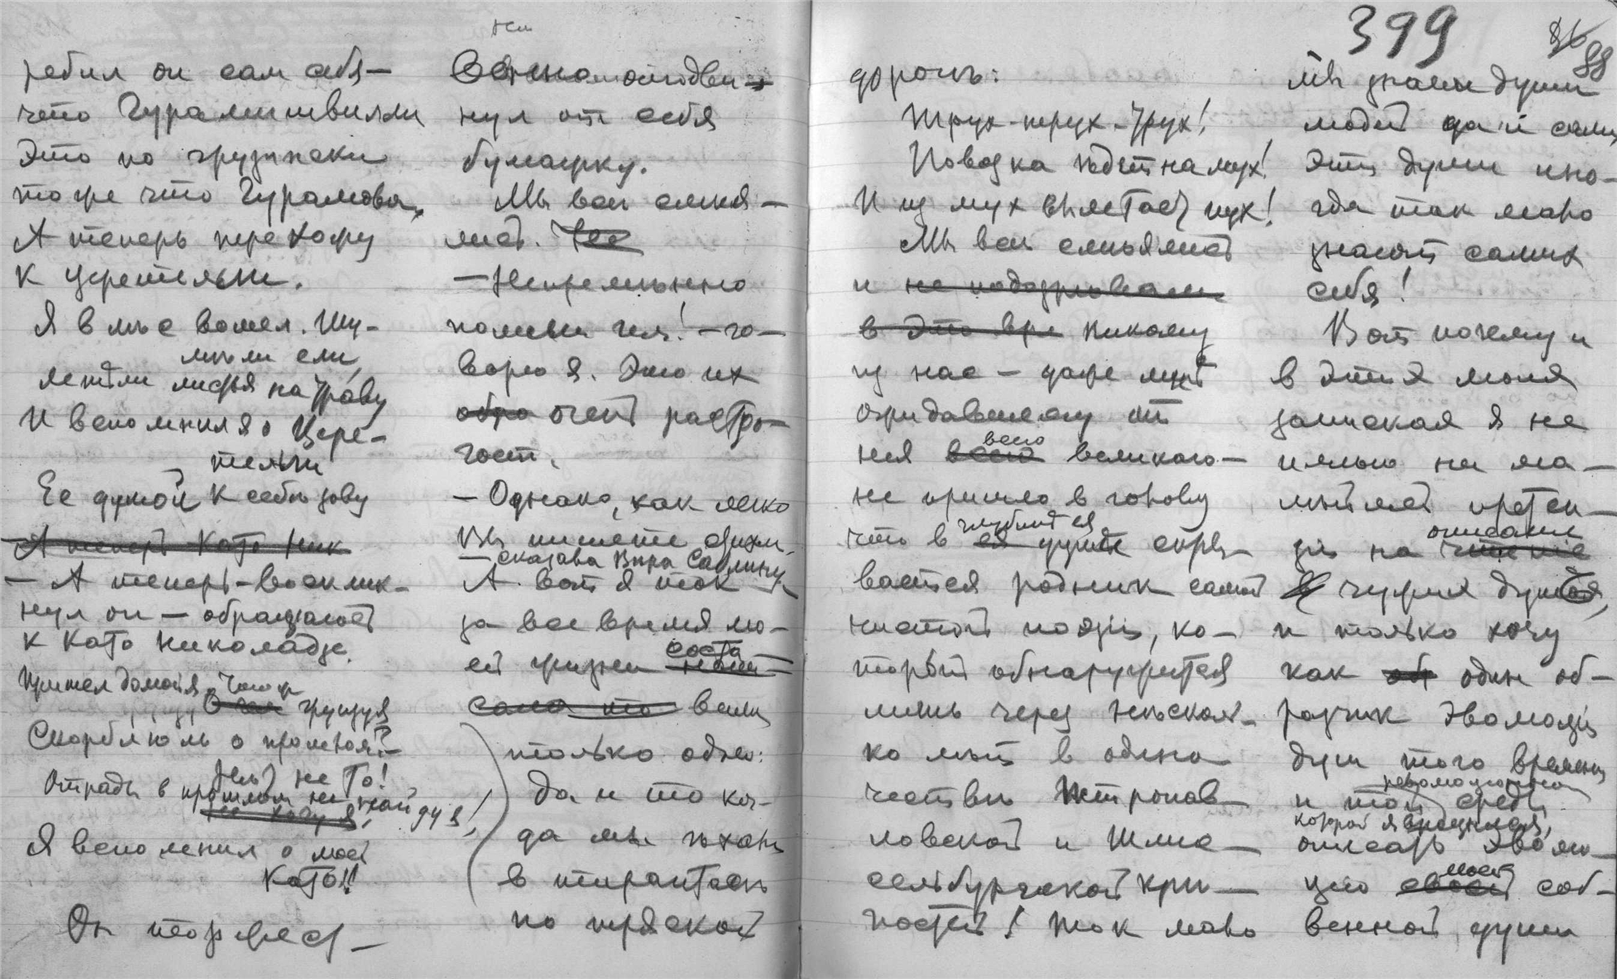 ребил он сам себя —
что Гурамишвили
это по грузински
тоже что Гурамова,
А теперь перехожу
к Церетели.
Я в лѣс вошел. Шу-
мѣли ели
летѣли листья на траву
И вспомнил я о Цере-
тели
Ее душой к себѣ зову
А теперь Като Ник
— А теперь — восклик-
нул он — обращаюсь
к Като Николадзе.
Пришел домой я
грущу я
Скорблю ль о прошлом?—
Нѣт, не то!
Отрады в прошлом не найду я!
Я вспомнил о моей
Като!!
Он торжест-
отодви-
нул от себя
бумажку.
Мы всѣ смѣя-
лись. Все
— Непремѣнно
пошлите им! — го-
ворю я. Это их
обра очень растро-
гает.
— Однако, как легко
Вы пишете стихи,
— сказала Вѣра
А вот я так
за все время мо-
ей жизни
само то вещь
только одно:
Да и то ко-
гда мы ѣхали
в тарантасѣ
по тряской
399
88
дорогѣ:
Трух-трух-трух!
Повозка ѣдет на мух!
И из мух вылетает пух!
Мы всѣ смѣялись
и не подозрѣвали
в это вре никому
из нас — даже мнѣ
ожидавшему от
нея всего великаго —
не пришло в голову
что в глубинѣ ея
ея души скры-
вается родник самой
чистой поэзіи, ко-
торый обнаружится
лишь через нѣсколь-
ко лѣт в одино-
чествѣ Петропав-
ловской и Шлис-
сельбургской крѣ-
постей! Так мало
мы знаем души
людей да и сами
эти души ино-
гда так мало
знают самих
себя!
Вот почему и
в этих моих
записках я не
имѣю ни ма-
лѣйшей претен-
зіи на описание
чтение
чужих душ,
и только хочу
как об один об-
разчик эволюціи
душ того времени
и той среды
в которой я вращался,
описать эволю-
цію своей моей соб-
венной души